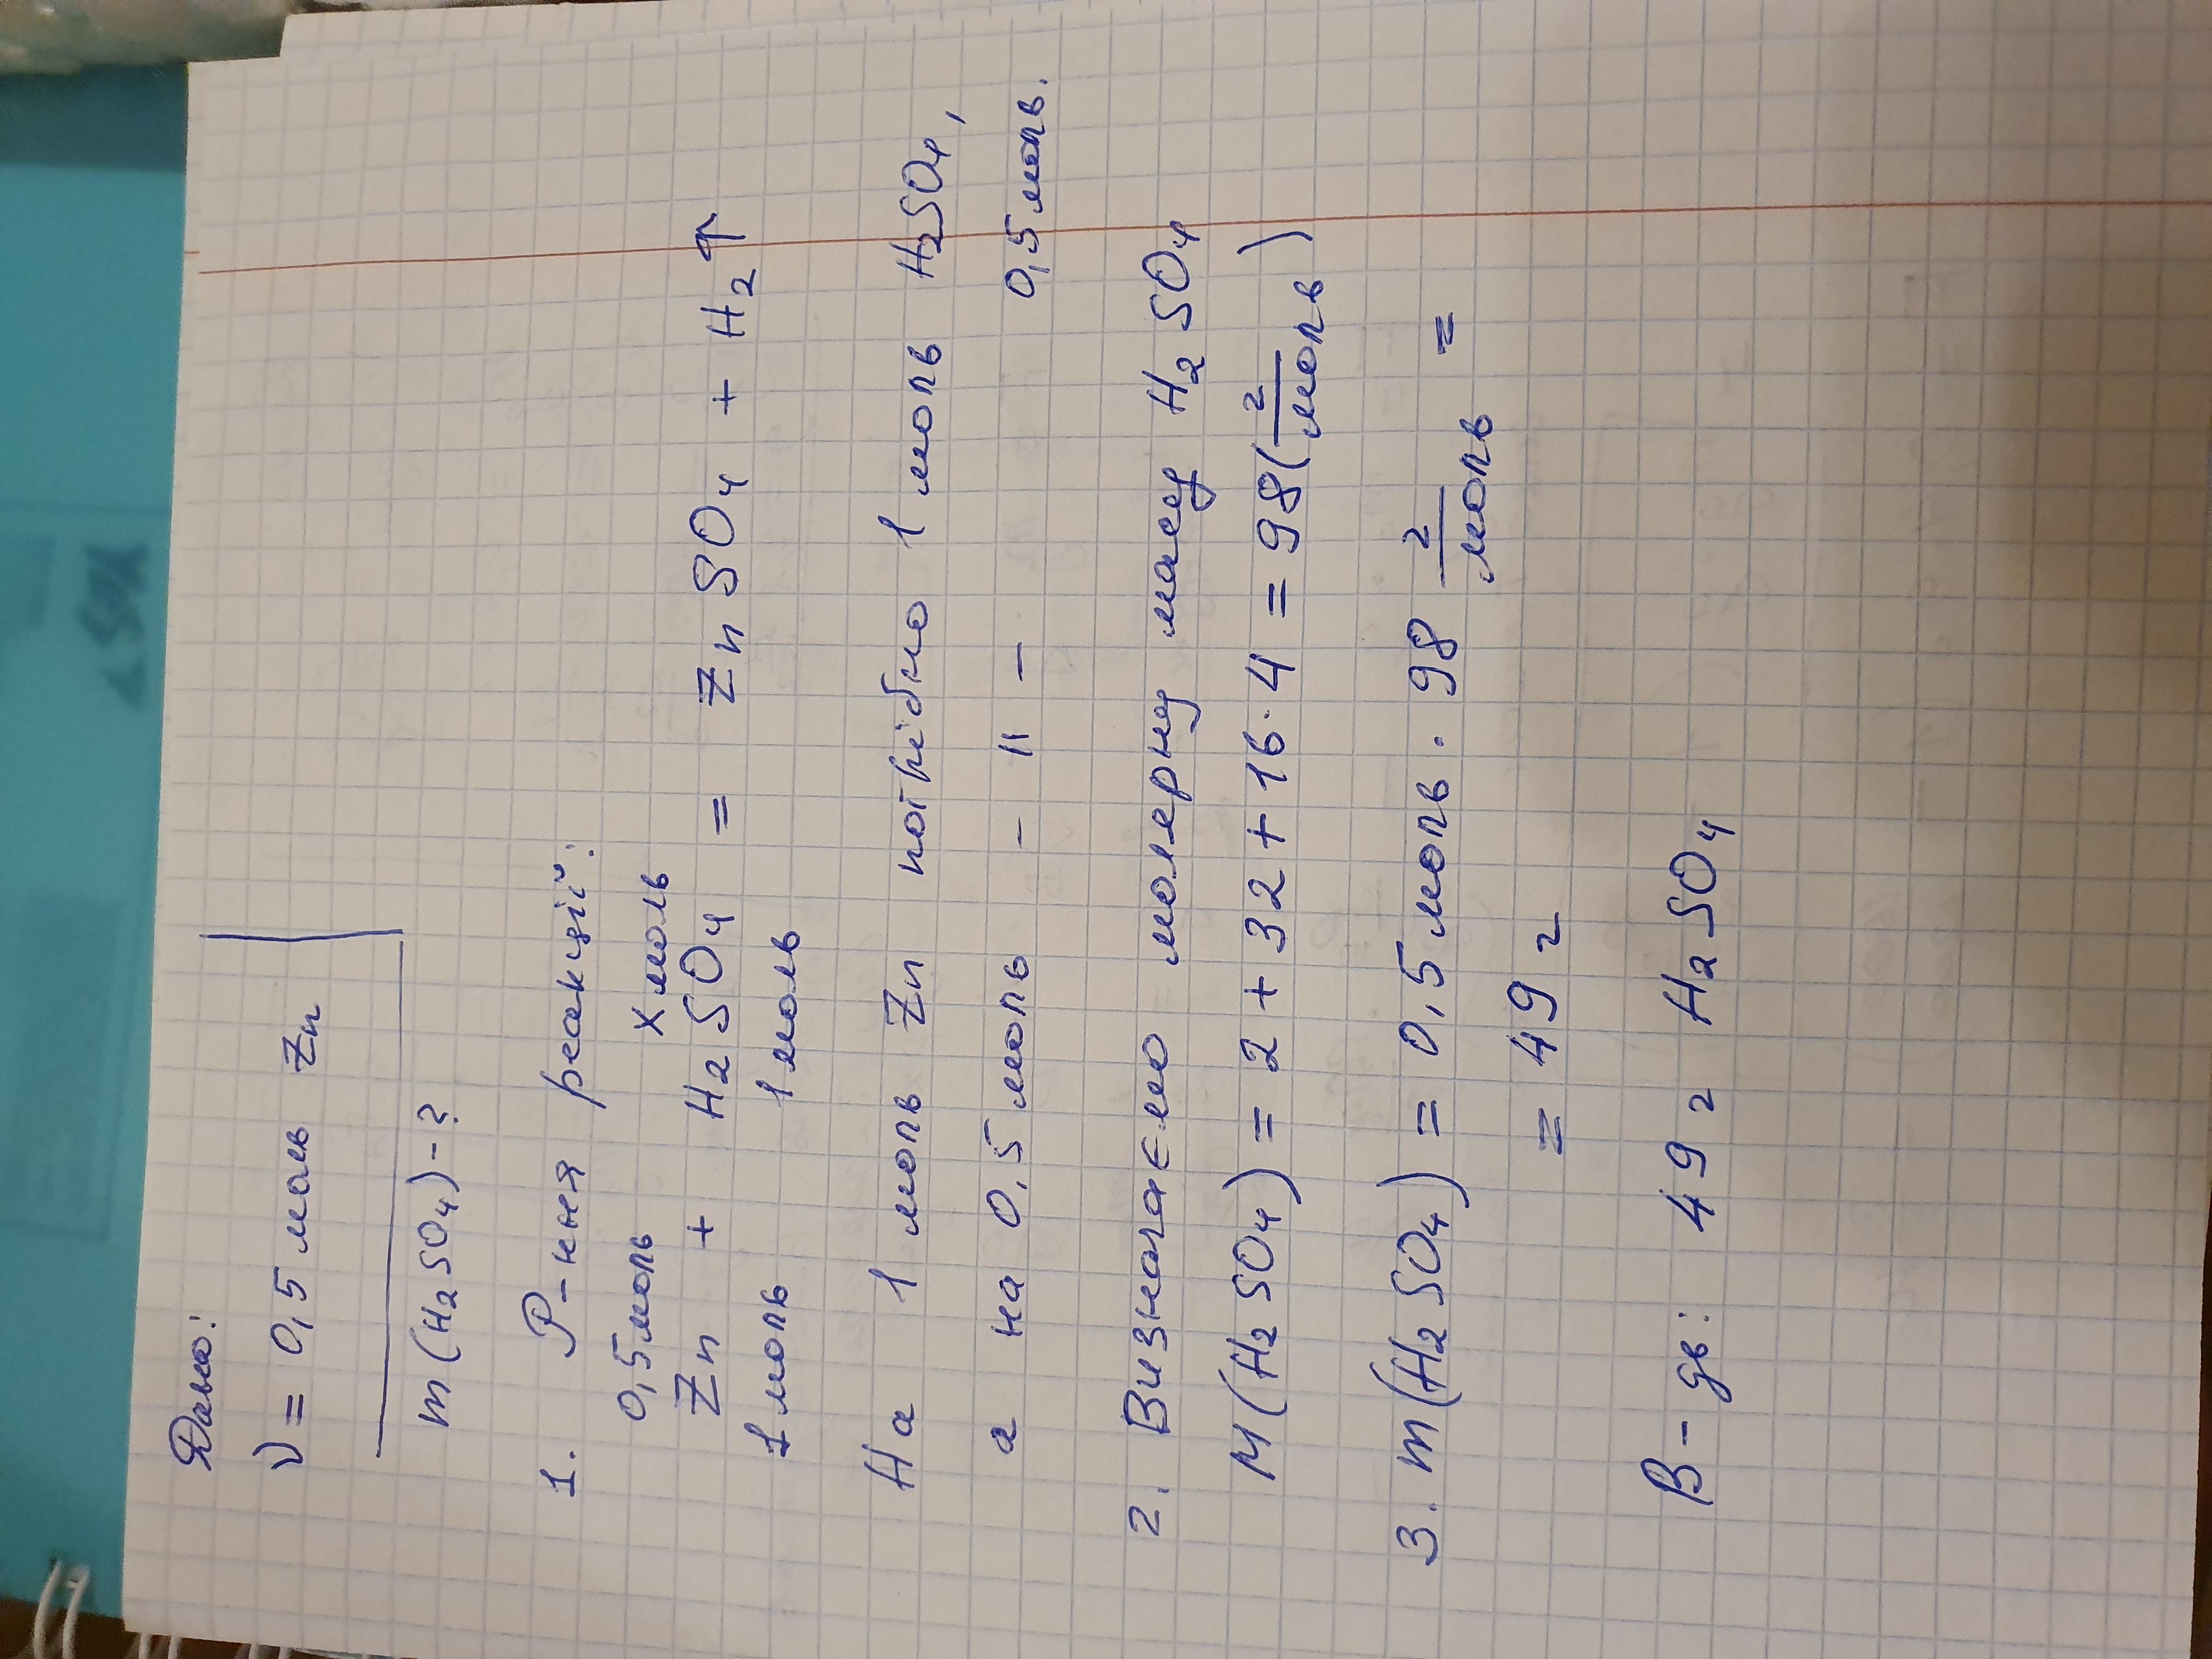 Дано:
ν = 0,5 моль Zn
m(H₂SO₄) - ?
1. Р-ння реакції:
0,5 моль x моль
Zn + H₂SO₄ = ZnSO₄ + H₂↑
1 моль 1 моль
На 1 моль Zn потрібно 1 моль H₂SO₄,
а на 0,5 моль - " - 0,5 моль.
2. Визначаємо молярну масу H₂SO₄
M(H₂SO₄) = 2 + 32 + 16 · 4 = 98 (г/моль)
3. m(H₂SO₄) = 0,5 моль · 98 г/моль =
= 49 г
В-дь: 49 г H₂SO₄